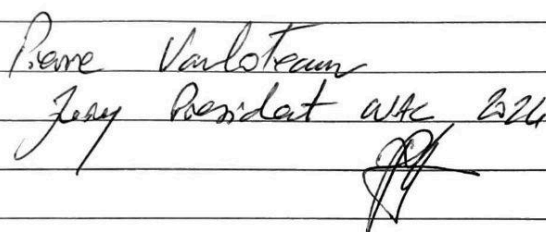 Pierre Varloteaux
Jury President WAC 2024